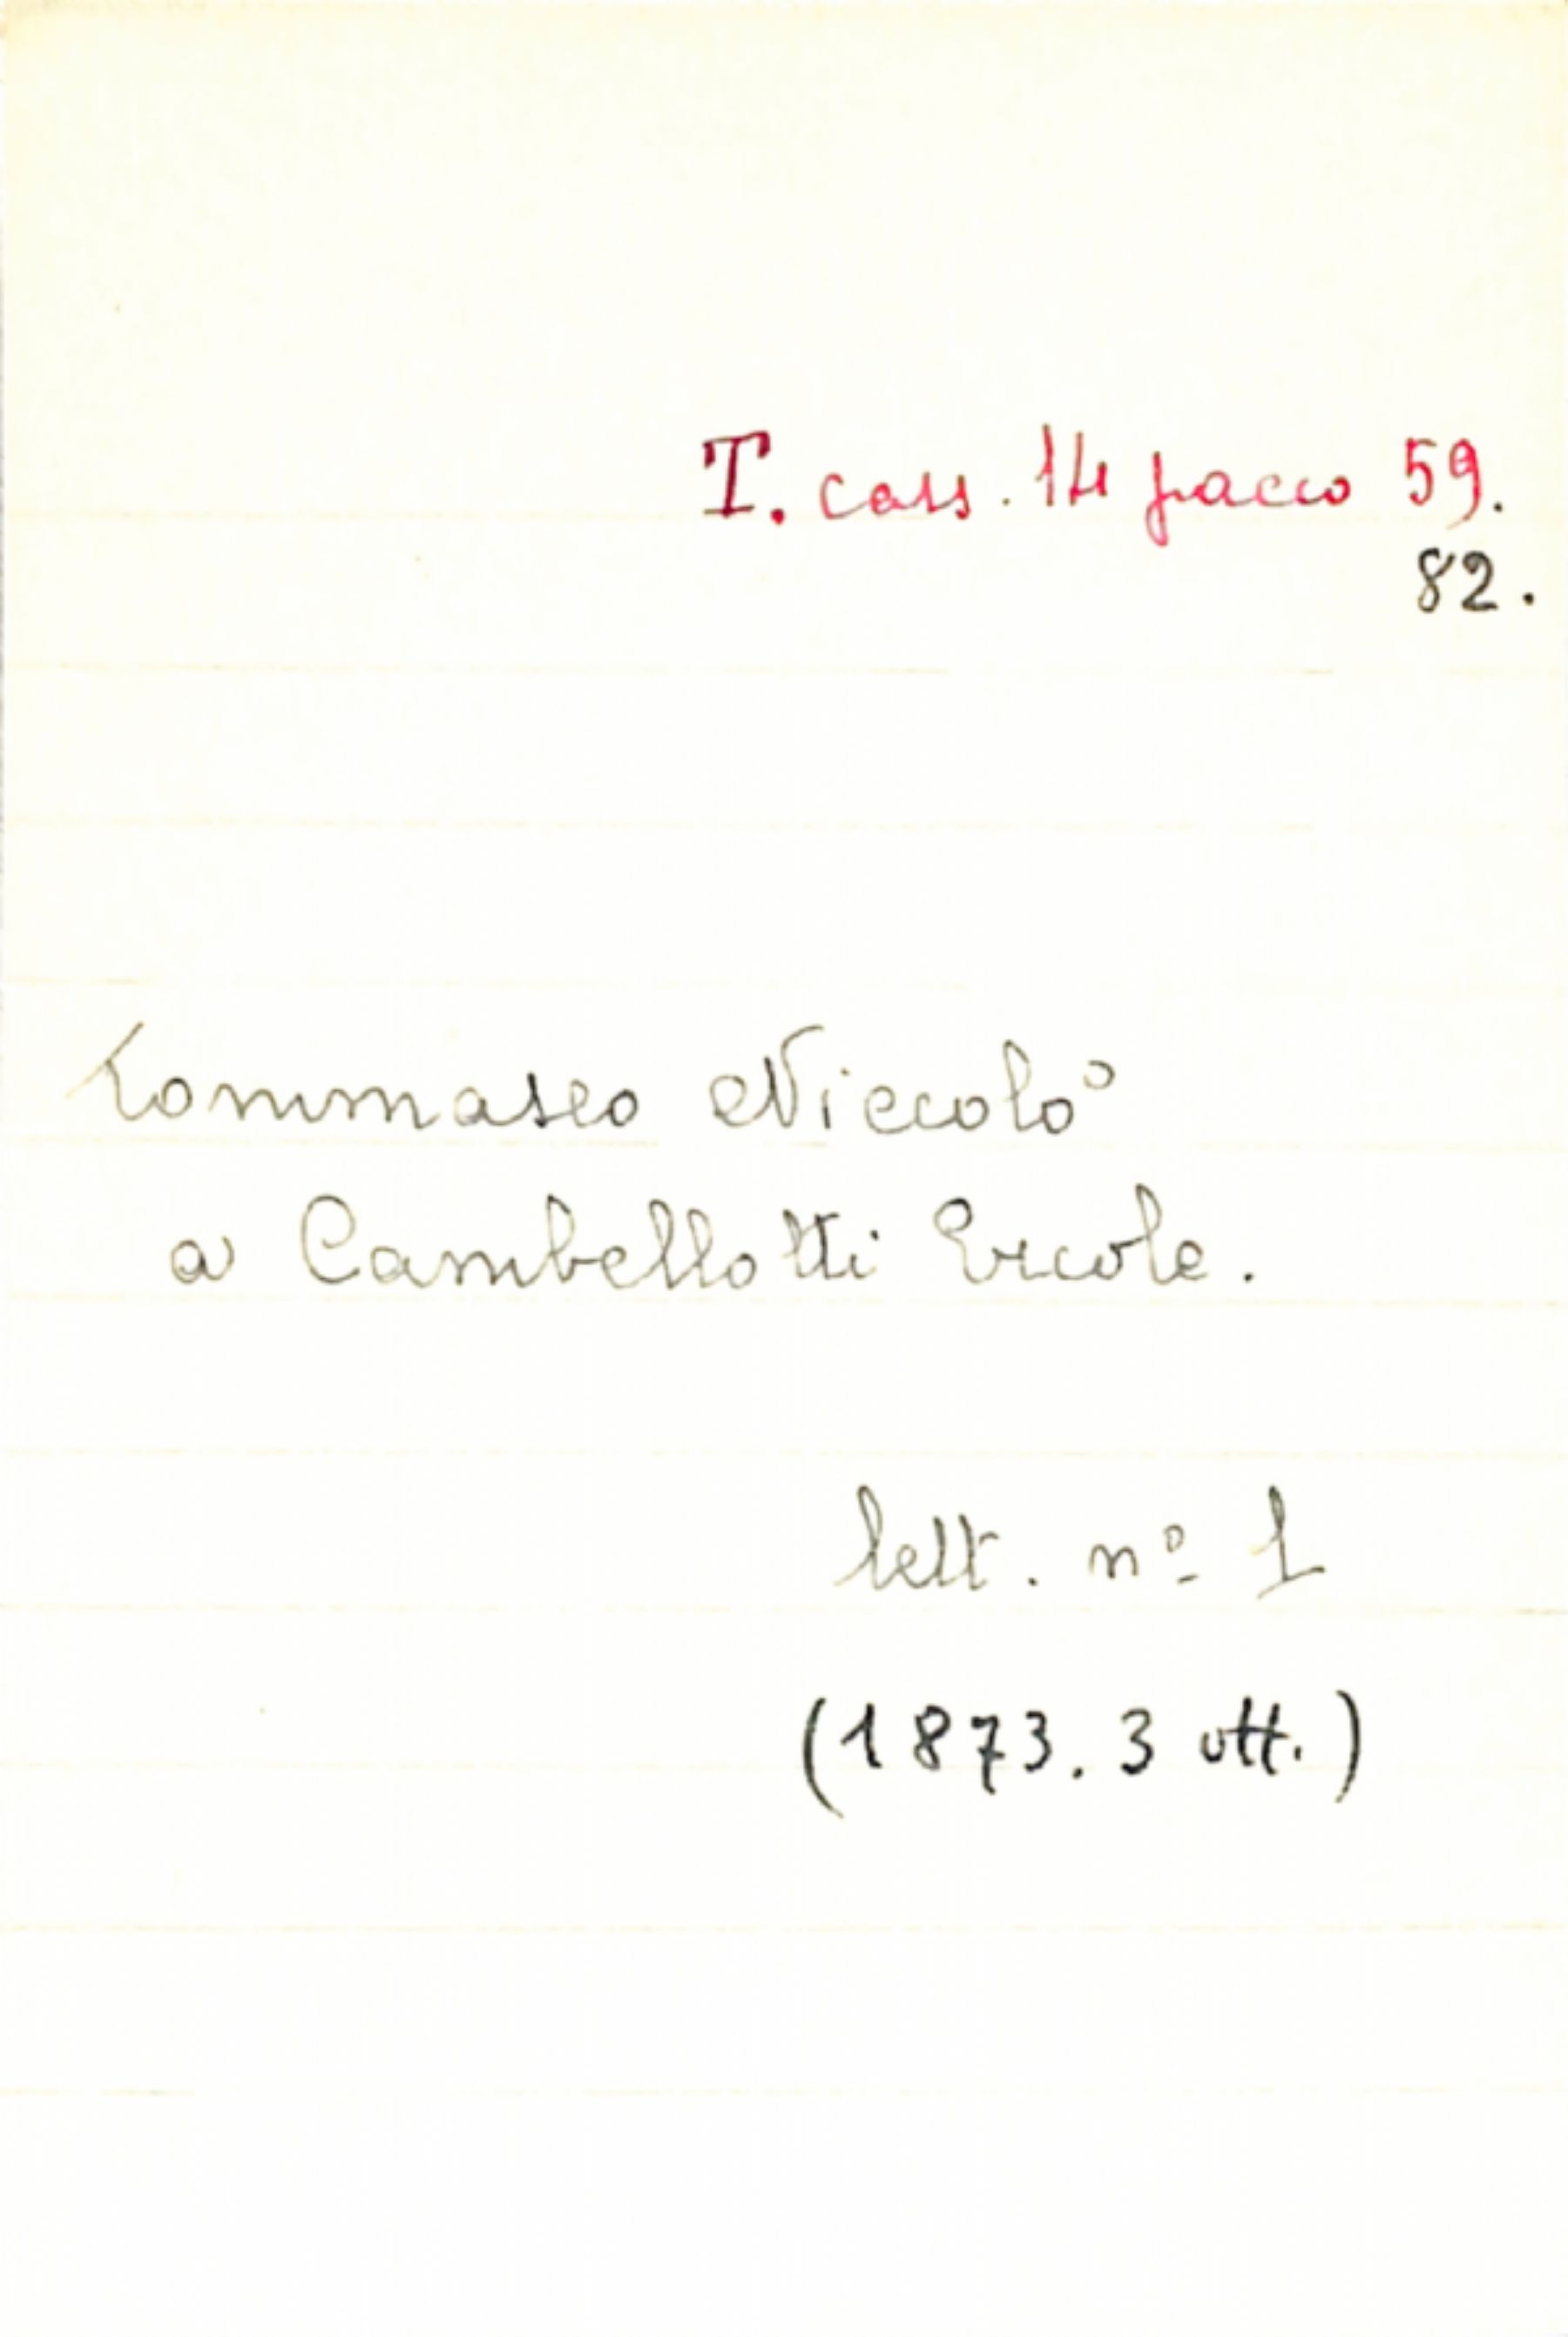 T. cass. 14 pacco 59.
82.
Tommaseo Niccolò
a Cambellotti Ercole.
lett. nº 1
(1873. 3 ott.)